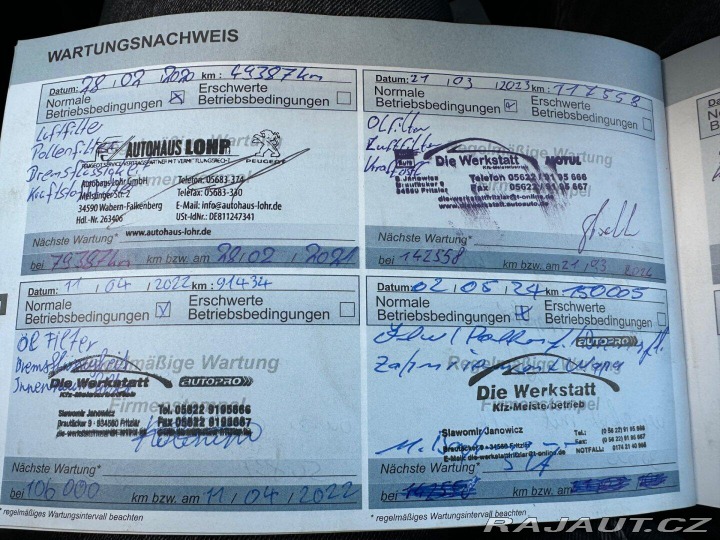 WARTUNGSNACHWEIS
Datum: 28 / 02 / 2020 km: 49387km
Normale Betriebsbedingungen
Erschwerte Betriebsbedingungen
Luftfilter
Pollenfilter
Bremsflüssigkeit
Kraftstoff
Regelmäßige Wartung
AUTOHAUS LOHR
PEUGEOT
Autohaus Lohr GmbH
Melsunger Str. 2
34590 Wabern-Falkenberg
Hdl.-Nr. 263406
Telefon: 05683-374
Telefax: 05683-330
E-Mail: info@autohaus-lohr.de
USt-IdNr.: DE811247341
www.autohaus-lohr.de
Nächste Wartung*
bei 79387km km bzw. am 28 / 02 / 2021
Datum: 21 / 03 / 2023 km: 117558
Normale Betriebsbedingungen
Erschwerte Betriebsbedingungen
Ölfilter
Die Werkstatt
MOTUL
S. Janowicz
Brautäcker 9
34560 Fritzlar
Telefon 05622 / 91 95 666
Fax 05622 / 91 95 667
Nächste Wartung*
bei 142558 km bzw. am 21 / 03 / 2024
Datum: 11 / 04 / 2022 km: 91434
Normale Betriebsbedingungen
Erschwerte Betriebsbedingungen
Öl Filter
Bremsflüssigkeit
Regelmäßige Wartung
Firmenstempel
Die Werkstatt
AUTOPRO
Kfz-Meisterbetrieb
Slawomir Janowicz
Brautäcker 9 - 34560 Fritzlar
Tel. 05622 9195666
Fax 05622 9195667
Nächste Wartung*
bei 106 000 km bzw. am 11 / 04 / 2022
* regelmäßiges Wartungsintervall beachten
Datum: 02 / 05 / 24 km: 150005
Normale Betriebsbedingungen
Erschwerte Betriebsbedingungen
Regelmäßige Wartung
AUTOPRO
Die Werkstatt
Kfz-Meisterbetrieb
Slawomir Janowicz
Brautäcker 9 - 34560 Fritzlar
Tel.: (0 56 22) 91 95 666
Fax: (0 56 22) 91 95 667
NOTFALL: 0174 21 40 966
Nächste Wartung*
bei km bzw. am
* regelmäßiges Wartungsintervall beachten
RAJAUT.CZ